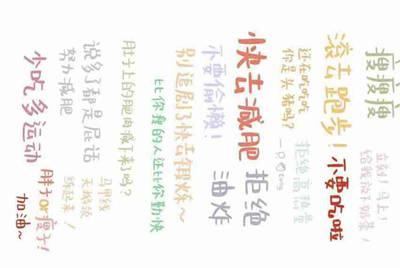 瘦瘦瘦
立刻!马上!
给我放下奶茶!
滚去跑步!
不要吃啦
还在吃吃吃
你是头猪吗?
拒绝高热量
快去减肥
拒绝
油炸
不要偷懒!
别追剧了快去锻炼~
比你瘦的人还比你勤快
肚子上的肥肉瘦下来了吗?
说多了都是屁话
努力减肥
马甲线
天鹅颈
练起来!
少吃多运动
胖子or瘦子!
加油~